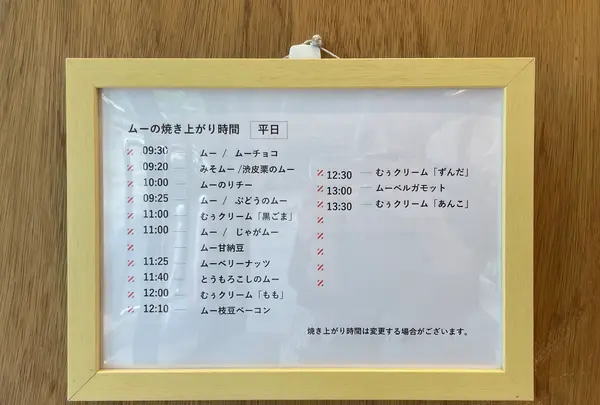 ムーの焼き上がり時間 平日
09:30 ムー / ムーチョコ
09:20 みそムー /渋皮栗のムー
10:00 ムーのりチー
09:25 ムー / ぶどうのムー
11:00 むぅクリーム「黒ごま」
11:00 ムー / じゃがムー
ムー甘納豆
11:25 ムーベリーナッツ
11:40 とうもろこしのムー
12:00 むぅクリーム「もも」
12:10 ムー枝豆ベーコン
12:30 むぅクリーム「ずんだ」
13:00 ムーベルガモット
13:30 むぅクリーム「あんこ」
焼き上がり時間は変更する場合がございます。